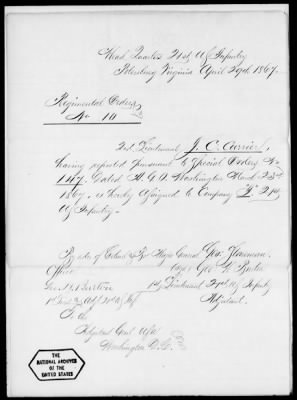 Head Quarters 21st U.S. Infantry
Petersburg Virginia April 29th 1867.
Regimental Orders
No 10
2d. Lieutenant J. C. Carrier
having reported pursuant to Special Orders No
147, Dated A.G.O. Washington March 23rd
1867, is hereby assigned to Company "K" 21st
US Infantry.
By order of Colonel & Bvt Major General Geo. Stoneman
Official
Geo W
1st Lieutenant 21st US Infantry
Adjutant.
To the
Adjutant Genl USA
Washington D.C.
THE
NATIONAL ARCHIVES
OF THE
UNITED STATES